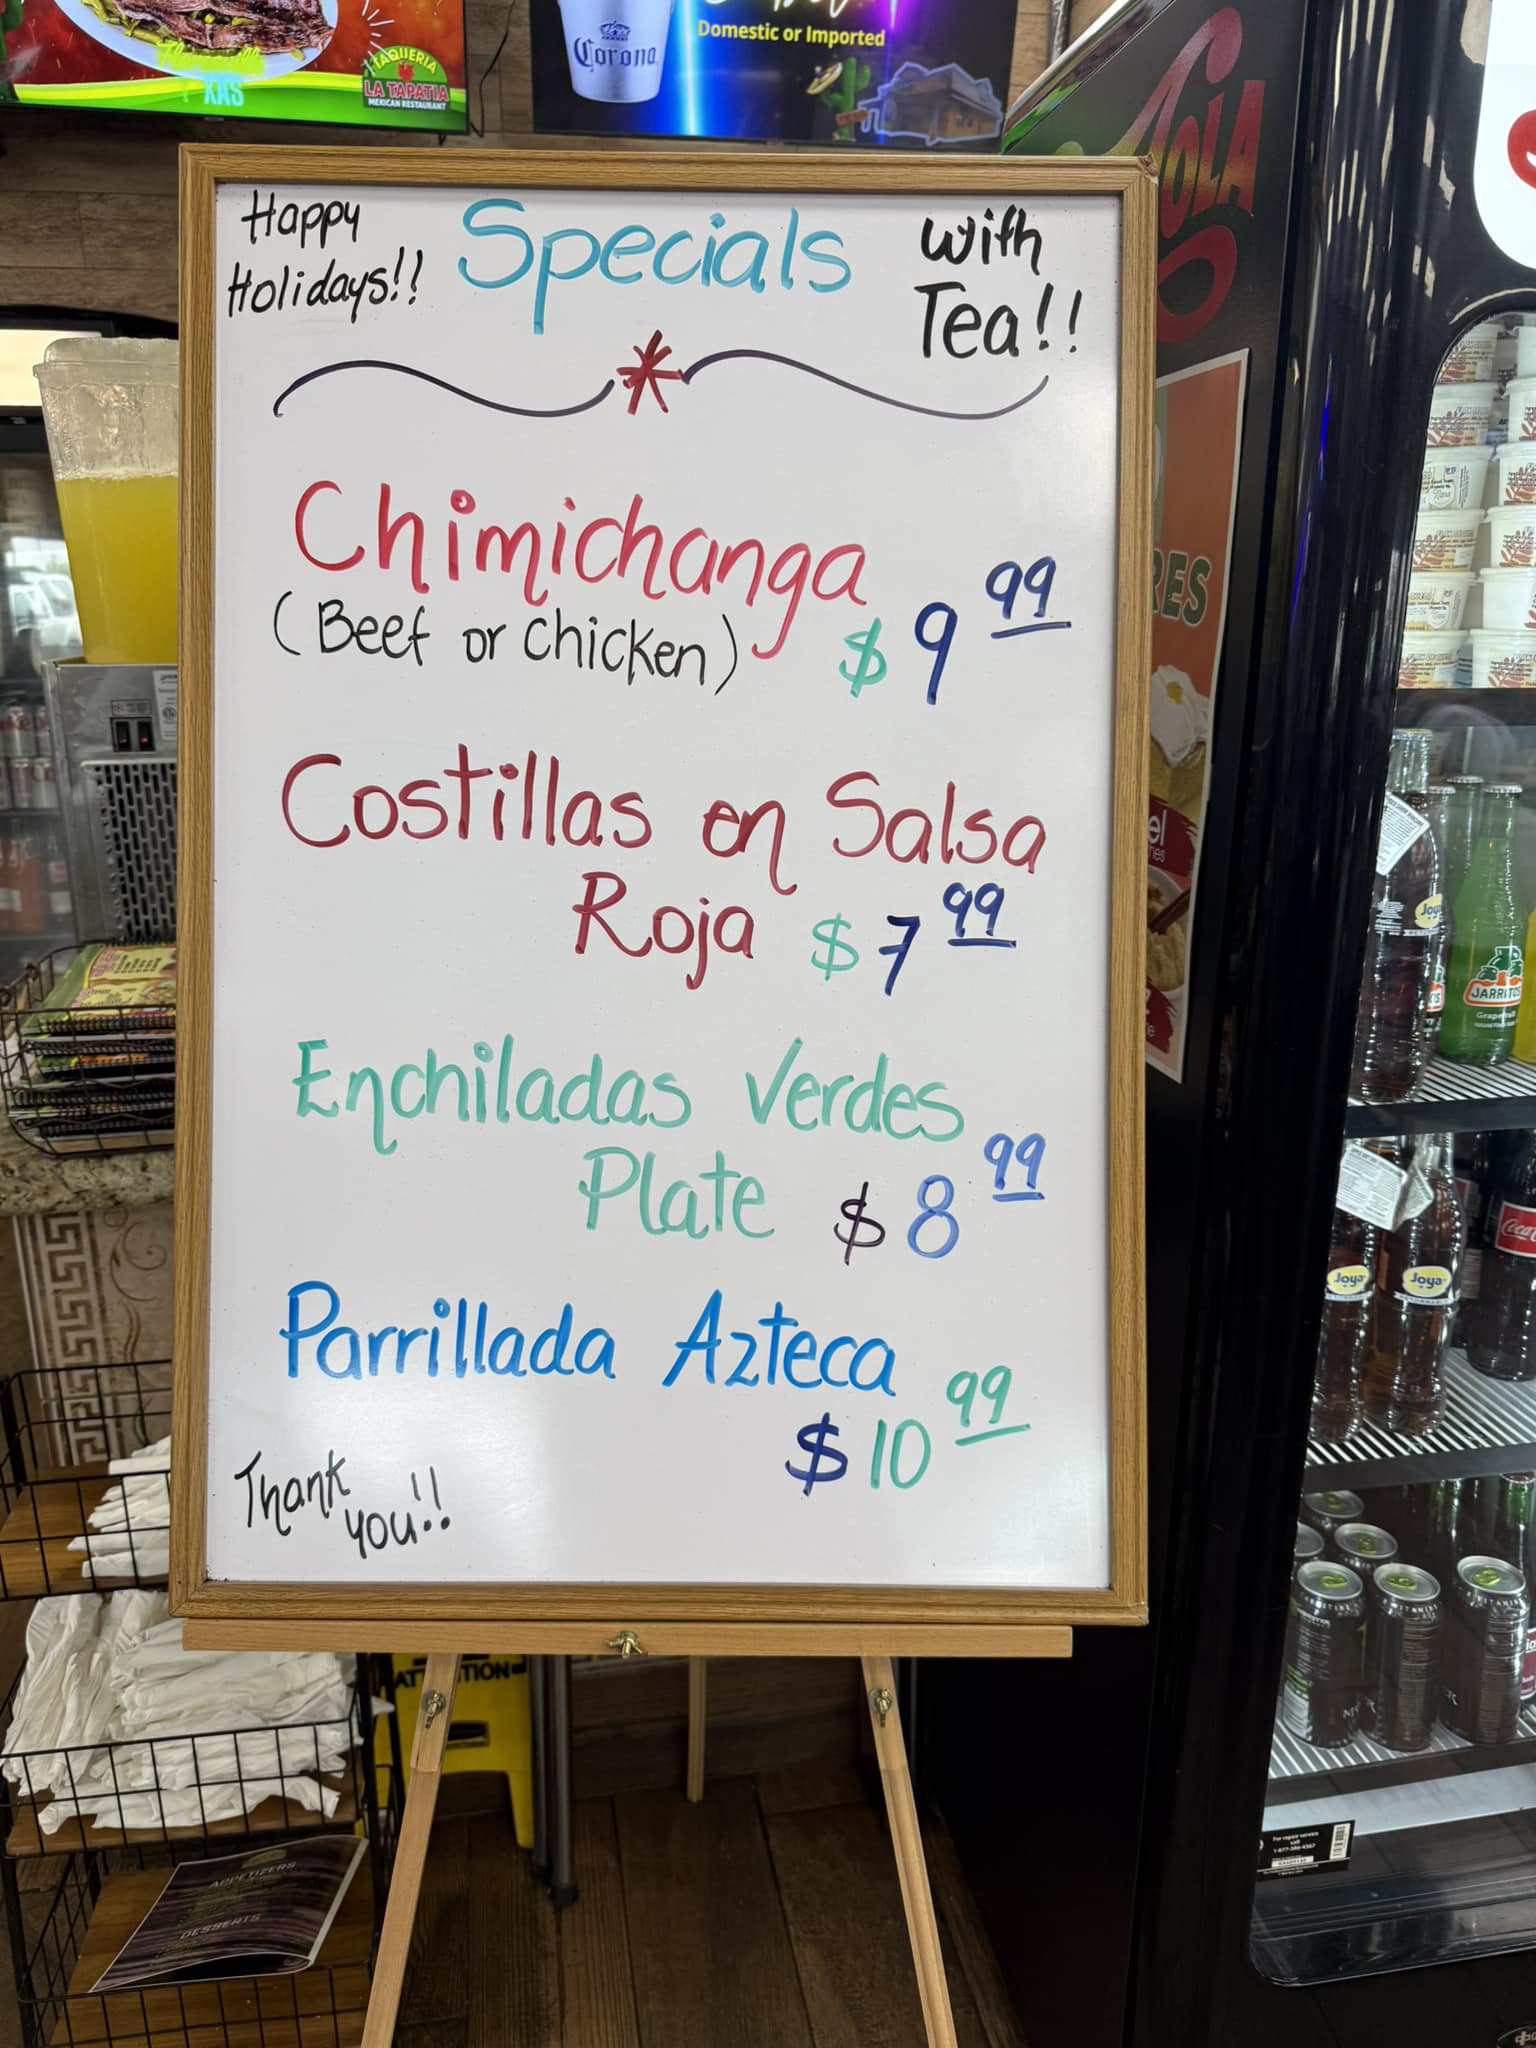 XAS
TAQUERIA
LA TAPATIA
MEXICAN RESTAURANT
Corona
Domestic or Imported
Happy
Holidays!!
Specials
With
Tea!!
Chimichanga
(Beef or Chicken)
$9 99
Costillas en Salsa
Roja $7 99
Enchiladas Verdes
Plate $8 99
Parrillada Azteca
$10 99
Thank
you!!
RES
Joya
JARRITOS
Joya
Joya
APPETIZERS
DESSERTS
For repair service
call